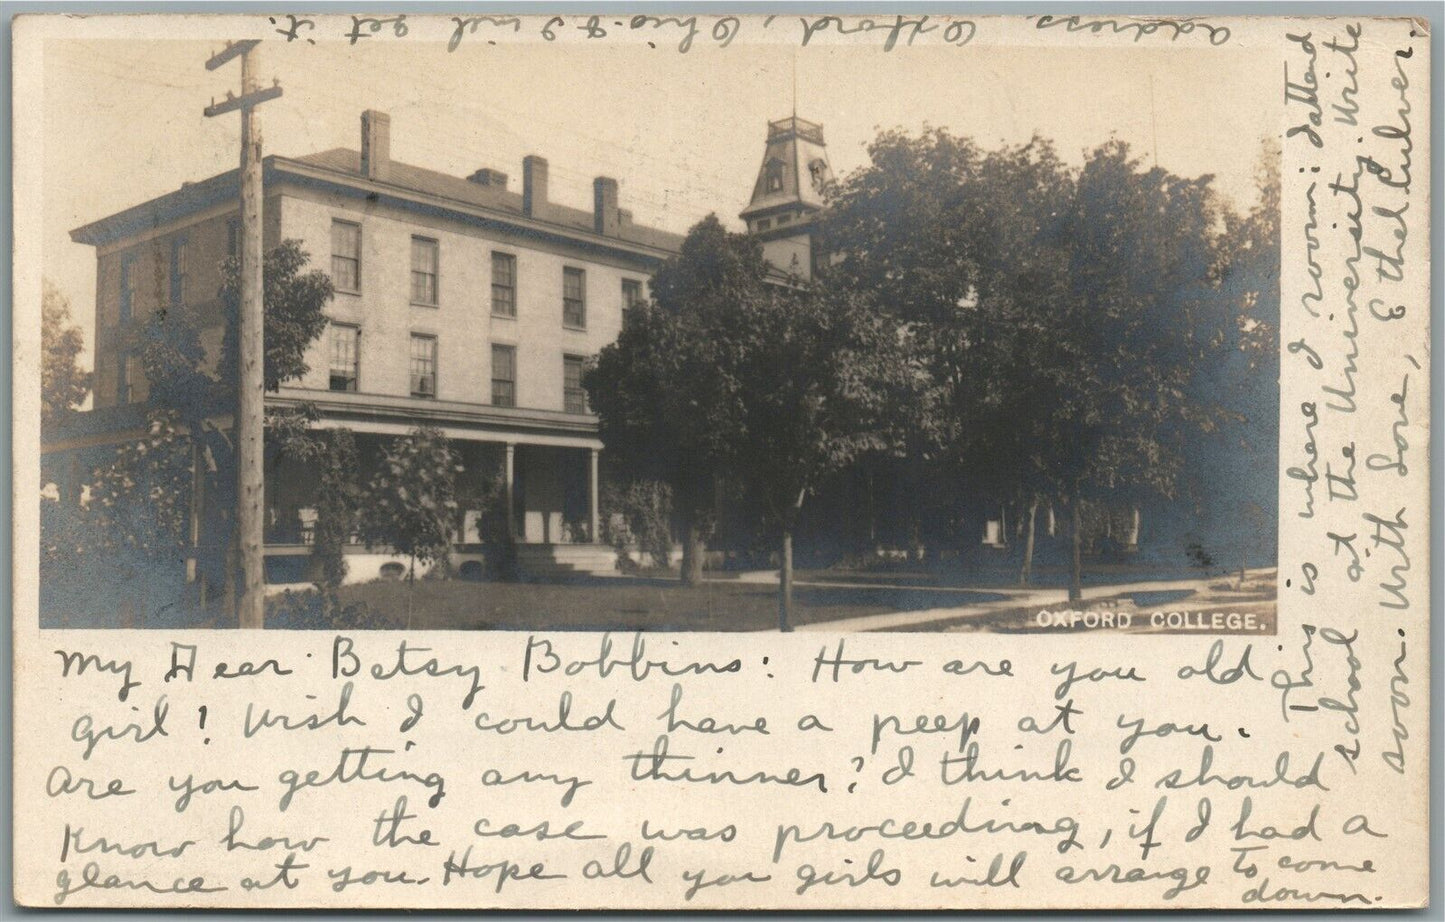 OXFORD COLLEGE.
My Dear Betsy Bobbins: How are you old
girl! Wish I could have a peep at you.
Are you getting any thinner? I think I should
know how the case was proceeding, if I had a
glance at you. Hope all you girls will arrange to come
down.
This is where I room: I attend
school at the University. Write
soon. With Love, Ethel Culver.
address. Oxford, Ohio. & I will get it.